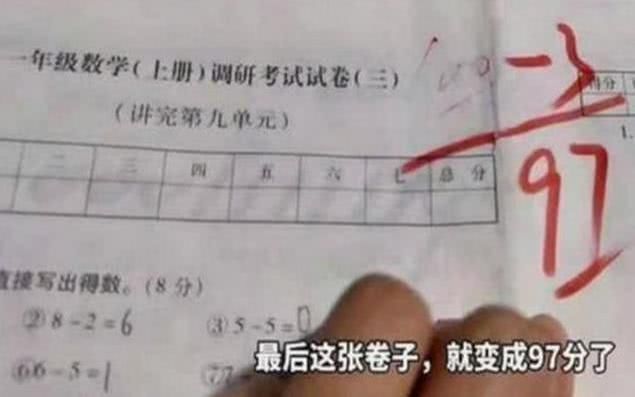 一年级数学(上册)调研考试试卷(三)
-3
得分
(讲完第九单元)
1.
97
二 三 四 五 六 七 总分
直接写出得数。(8分)
②8-2=6 ③5-5=0
⑥6-5=1 ⑦7
最后这张卷子，就变成97分了